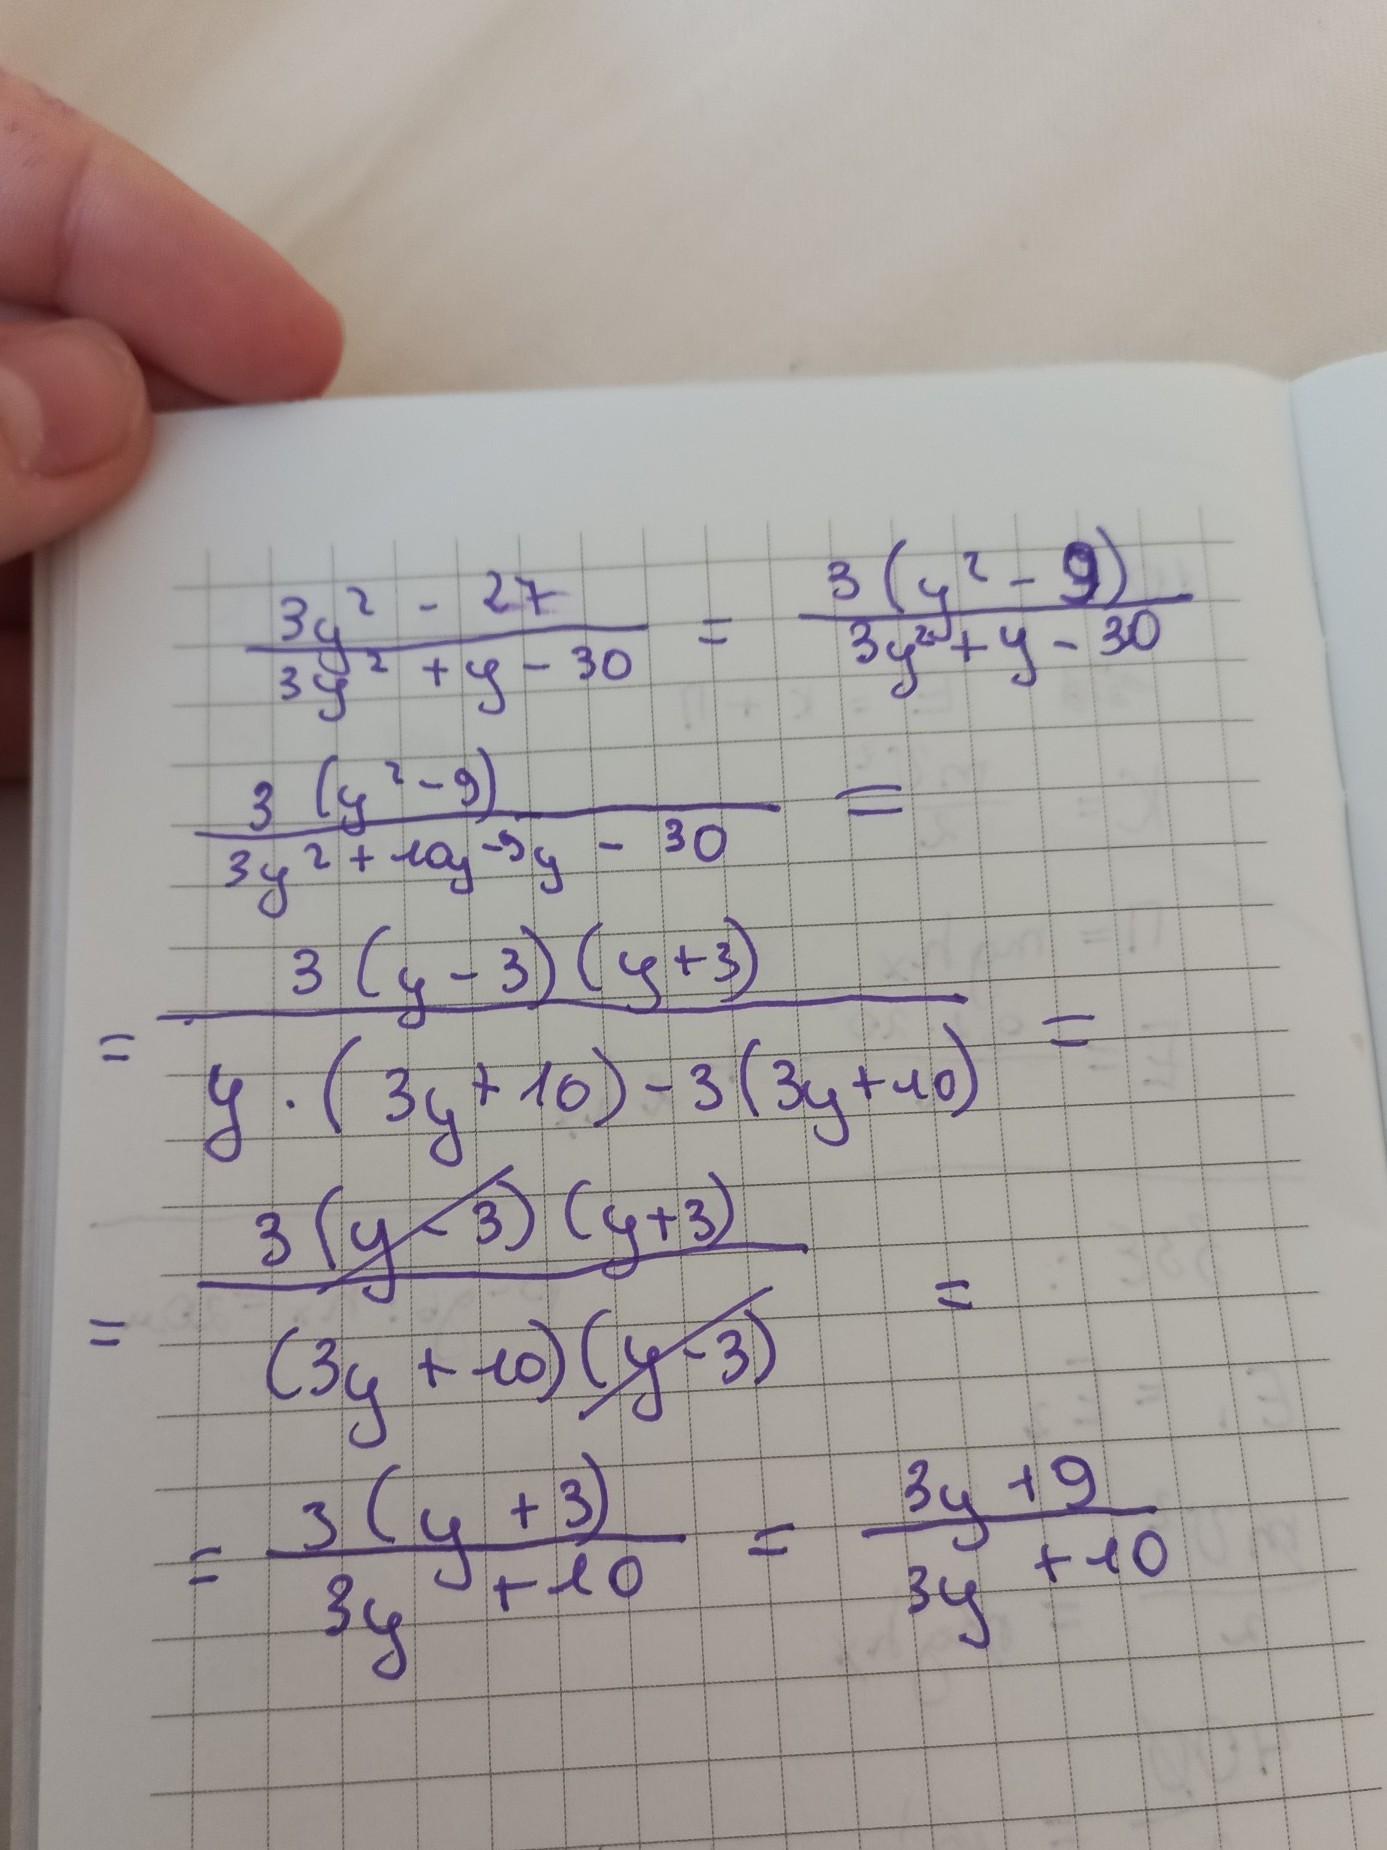 3y² - 27 / 3y² + y - 30 = 3(y² - 9) / 3y² + y - 30
3(y² - 9) / 3y² + 10y - 9y - 30 =
= 3(y - 3)(y + 3) / y · (3y + 10) - 3(3y + 10) =
= 3(y - 3)(y + 3) / (3y + 10)(y - 3) =
= 3(y + 3) / 3y + 10 = 3y + 9 / 3y + 10